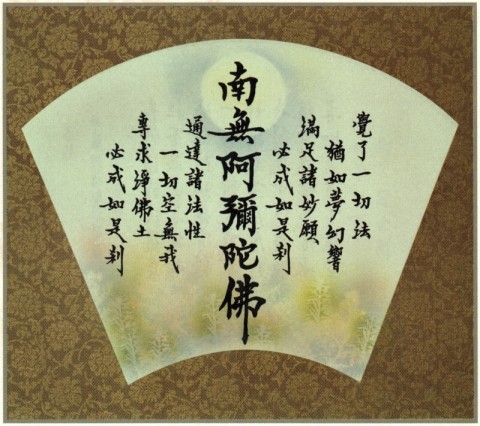 覺了一切法
猶如夢幻響
滿足諸妙願
必成如是刹
南無阿彌陀佛
通達諸法性
一切空無我
專求淨佛土
必成如是刹